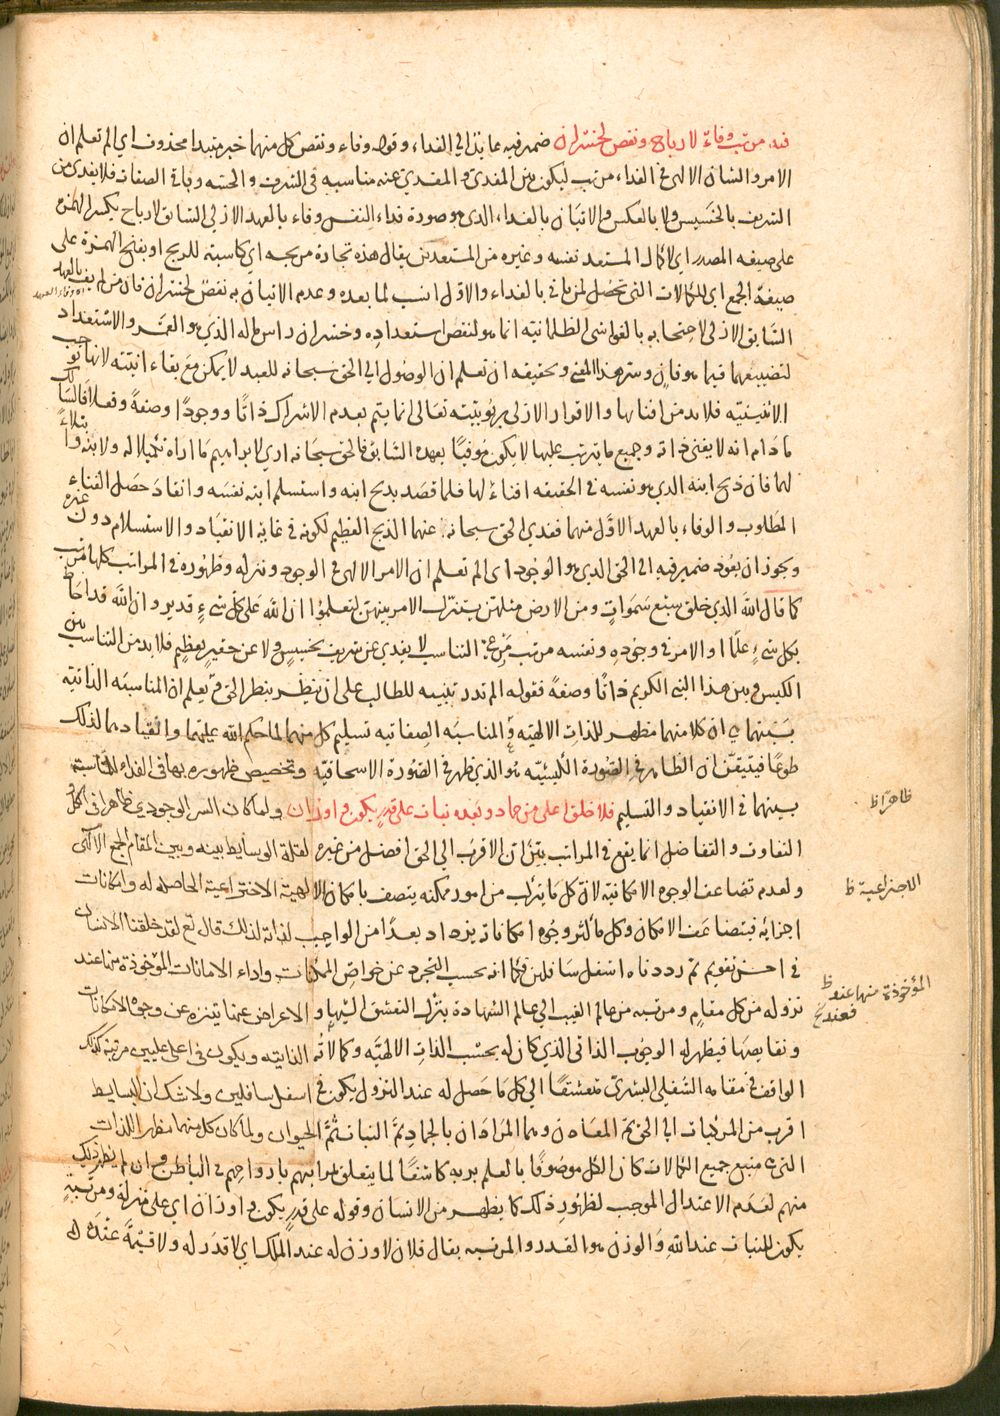 فيه مرتب وفاء لارباح ونقص لخسران ضمير فيه عائد الي الفداء وقوله وفاء ونقص كل منهما خبر مبتدا محذوف اي الم تعلم ان
الامر والشان الالهي في الفداء مرتب ليكون بين المفدي والمفدي عنه مناسبه في الشرف والخسه وباقي الصفات فلا يفدي من
الشريف بالخسيس ولا بالعكس والاتيان بالفداء الذي هو صورة فداء النفس وفاء بالعهد الازلي السابق لارباح بكسر الهمزه
علي صيغه المصدر اي لاكمال المستعد نفسه وغيره من المستعدين يقال هذه تجارة مربحه اي كاسبته للربح او بفتح الهمزة علي
صيغة الجمع اي للكمالات التي تحصل لمن ياتي بالفداء والاول انسب لما بعده وعدم الاتيان به نقص لخسران فان من لم يف بالعهد
السابق الازلي لاحتجابه بالغواشي الظلمانيه انما هو لنقص استعداده وخسران راس ماله الذي هو العمر والاستعداد
لتضييعهما فيما هو فان وسر هذا المعني وتحقيقه ان تعلم ان الوصول الي الحق سبحانه للعبد لا يمكن مع بقاء انيته لانها توجب
الاثنينيه فلا بد من افنائها والاقرار الازلي بربوبيته تعالى انما يتم بعدم الاشراك ذاتا ووجودا وصفة وفعلا فالسالك
ما دام انه لا يفني ذاته وجميع ما يترتب عليها لا يكون موفيا بعهده السابق فالحق سبحانه اري لابراهيم ما اراه تكميلا له ولابنه وابتلاء
لهما فان ذبح ابنه الذي هو نفسه في الحقيقه افناء لها فلما قصد بذبح ابنه واستسلم ابنه نفسه وانقاد حصل الفناء
المطلوب والوفاء بالعهد الاول منهما ففدي الحق سبحانه عنهما الذبح العظيم لكونه في غاية الانقياد والاستسلام دون غيره
ويجوز ان يعود ضمير فيه الي الحق الذي هو الوجود اي الم تعلم ان الامر الالهي في الوجود وتنزله وظهوره في المراتب كلها مرتب
كما قال الله الذي خلق سبع سموات ومن الارض مثلهن يتنزل الامر بينهن لتعلموا ان الله على كل شيء قدير وان الله قد احاط
بكل شيء علما او الامر في وجوده ونفسه مرتب مرعي التناسب لا يفدي عن شريف بخسيس ولا عن حقير بعظيم فلا بد من التناسب بين
الكبش وبين هذا النبي الكريم ذاتا وصفة فقوله الم تدر تنبيه للطالب على ان ينظر بنظر الحق فيعلم ان المناسبه الذاتيه
بينهما هي ان كلا منهما مظهر للذات الالهيه والمناسبه الصفاتيه تسليم كل منهما لما حكم الله عليهما وانقيادهما لذلك
طوعا فيتيقن ان الظاهر في الصورة الكبشيه هو الذي ظهر في الصورة الاسحاقيه وتخصيص ظهوره بها في الفداء للمناسبه
بينهما في الانقياد والتسليم فلا خلق اعلي من جماد وبعده نبات على قدر يكون واوزان ولما كان السر الوجودي ظاهر في الكل
التفاوت والتفاضل انما يقع في المراتب بين ان الاقرب الي الحق افضل من غيره لقلة الوسايط بينه وبين المقام الجمع الالهي
ولعدم تضاعف الوجوه الامكانيه لان كل ما يتركب من امور ممكنه يتصف بامكان الالهية الاختراعية الحاصله له وامكانات
اجزايه فيتضاعف الامكان وكل ما كثر وجوه امكاناته يزداد بعدا من الواجب لذاته لذلك قال تع لقد خلقنا الانسان
في احسن تقويم ثم رددناه اسفل سافلين فكما انه بحسب التجرد عن خواص الممكنات واداء الامانات المؤخوذة منها عند
نزوله من كل مقام ومرتبه من عالم الغيب الي عالم الشهادة بترك التعشق اليها والاعراض عنها يتنزه عن وجوه الامكانات
ونقايصها فيظهر له الوجوب الذاتي الذي كان له بحسب الذات الالهيه وكمالاته الذاتيه ويكون في اعلى عليين مرتبة كذلك
الواقف في مقامه السفلي البشري متعشقا الي كل ما حصل له عند النزول يكون في اسفل سافلين ولا شك ان البسايط
اقرب من المركبات الي الحق ثم المعادن وهما المرادان بالجماد ثم النبات ثم الحيوان ولما كان كل منها مظهرا للذات
التي هي منبع جميع الكمالات كان الكل موصوفا بالعلم بربه كاشفا لما يتعلق بمراتبهم بارواحهم في الباطن وان لم يظهر ذلك
منهم لعدم الاعتدال الموجب لظهور ذلك كما يظهر من الانسان وقوله على قدر يكون واوزان اي على منزلة ومرتبة
يكون للنبات عند الله والوزن هو القدر والمرتبه يقال فلان لا وزن له عند الملك اي لا قدر له ولا قيمة عنده
ظاهرا ظ
الاجتراعية ظ
المؤخوذة منها عند ظ